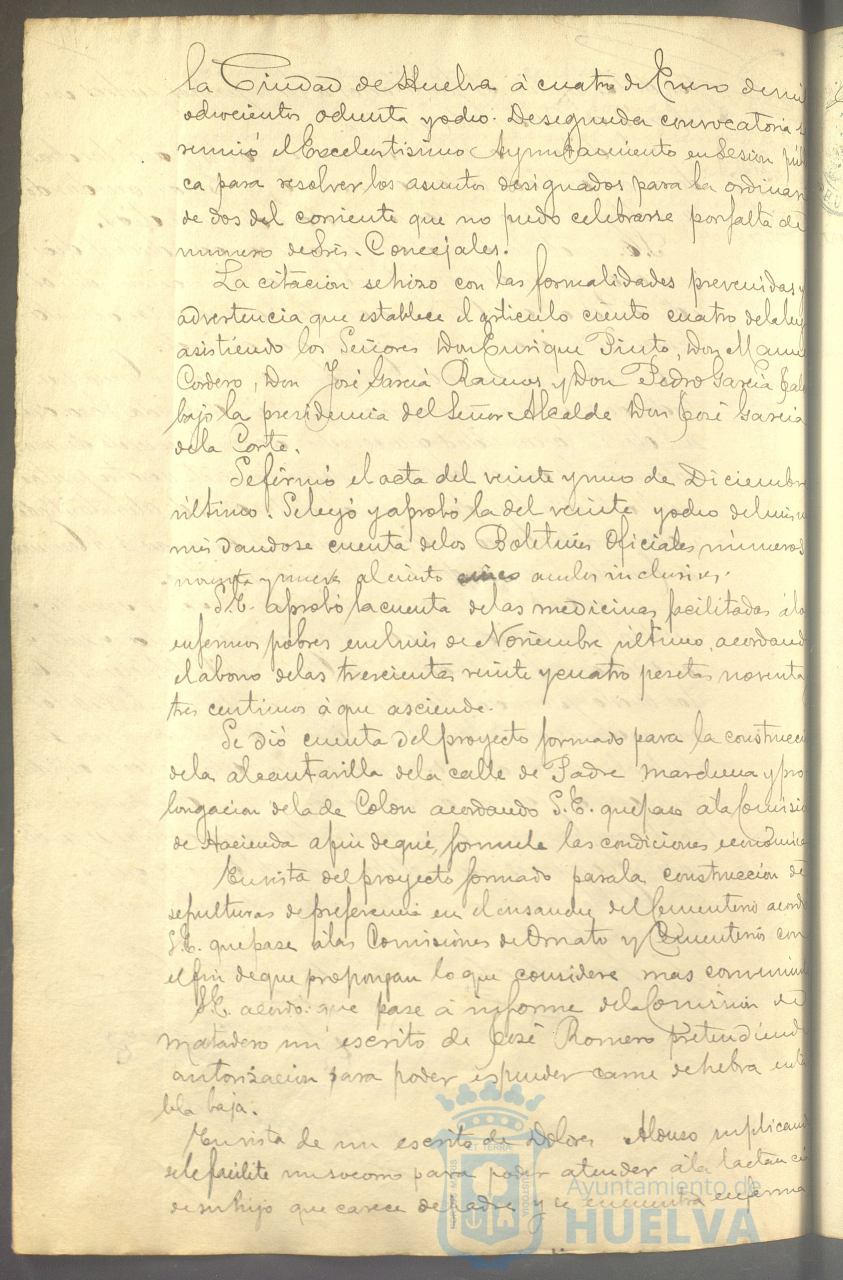 la Ciudad de Huelva á cuatro de Enero de mi
ochocientos ochenta y ocho. De segunda convocatoria s
reunió el Excelentisimo Ayuntamiento en Sesion púb
ca para resolver los asuntos designados para la ordinari
de dos del corriente que no pudo celebrarse por falta de
numero de Sres. Concejales.
La citacion se hizo con las formalidades prevenidas y
advertencia que establece el articulo ciento cuatro de la ley
asistiendo los Señores Don Enrique Pinto, Don Manu
Cordero, Don José Garcia Ramos y Don Pedro Garcia
bajo la presidencia del Señor Alcalde Don José Garcia
de la Corte.
Se firmó el acta del veinte y uno de Diciembre
último. Se leyó y aprobó la del veinte y ocho del mism
mes dandose cuenta de los Boletines Oficiales números
noventa y nueve al ciento ambos inclusives.
S.E. aprobó la cuenta de las medicinas facilitadas á lo
enfermos pobres en el mes de Noviembre último, acordand
el abono de las trescientas veinte y cuatro pesetas noventa
tres centimos á que asciende.
Se dió cuenta del proyecto formado para la construcci
de la alcantarilla de la calle de Padre Marchena y pro
longacion de la de Colon acordando S.E. que pase a la Comisio
de Hacienda a fin de que formule las condiciones económica
En vista del proyecto formado para la construccion de
sepulturas de preferencia en el ensanche del Cementerio acord
S.E. que pase á las Comisiones de Ornato y Cementerios con
el fin de que propongan lo que considere mas convenien
S.E. acordó que pase á informe de la Comision de
Matadero un escrito de José Romero pretendiendo
autorizacion para poder espender carne de hebra en ta
bla baja.
En vista de un escrito de Dolores Alonso suplicand
se le facilite un socorro para poder atender á la lactanci
de su hijo que carece de padre y se encuentra enferma
Ayuntamiento de
HUELVA